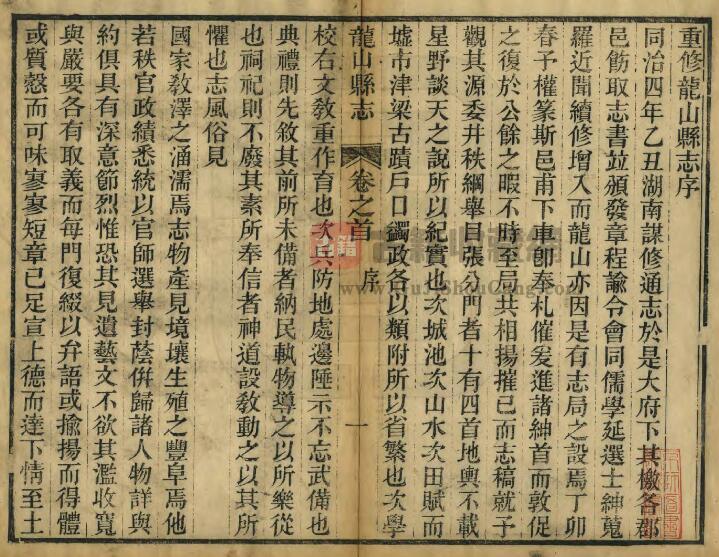 重修龍山縣志序
同治四年乙丑湖南謀修通志於是大府下其檄各郡
邑飭取志書並頒發章程諭令會同儒學延選士紳蒐
羅近聞續修增入而龍山亦因是有志局之設焉丁卯
春予權篆斯邑甫下車卽奉札催爰進諸紳首而敦促
之復於公餘之暇不時至局共相揚搉已而志稿就予
觀其源委井秩綱舉目張分門者十有四首地輿不載
星野談天之說所以紀實也次城池次山水次田賦而
墟市津梁古蹟戶口蠲政各以類附所以省繁也次學
龍山縣志 卷之首 序 一
校右文敎重作育也次兵防地處邊陲示不忘武備也
典禮則先敘其前所未備者納民軌物導之以所樂從
也祠祀則不廢其素所奉信者神道設敎動之以其所
懼也志風俗見
國家敎澤之涵濡焉志物產見境壤生殖之豐阜焉他
若秩官政績悉統以官師選舉封蔭倂歸諸人物詳與
約俱具有深意節烈惟恐其見遺藝文不欲其濫收寬
與嚴要各有取義而每門復綴以弁語或揄揚而得體
或質慤而可味寥寥短章已足宣上德而達下情至土
古籍
www.GuJiShouCang.com